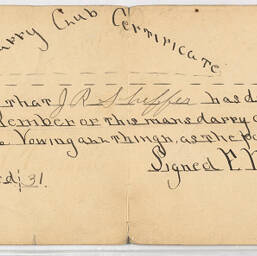 arry Club Certificate
that J R Sheffer has d
ember of this mans darry
Vowing all things, as the po
Signed
d 31.